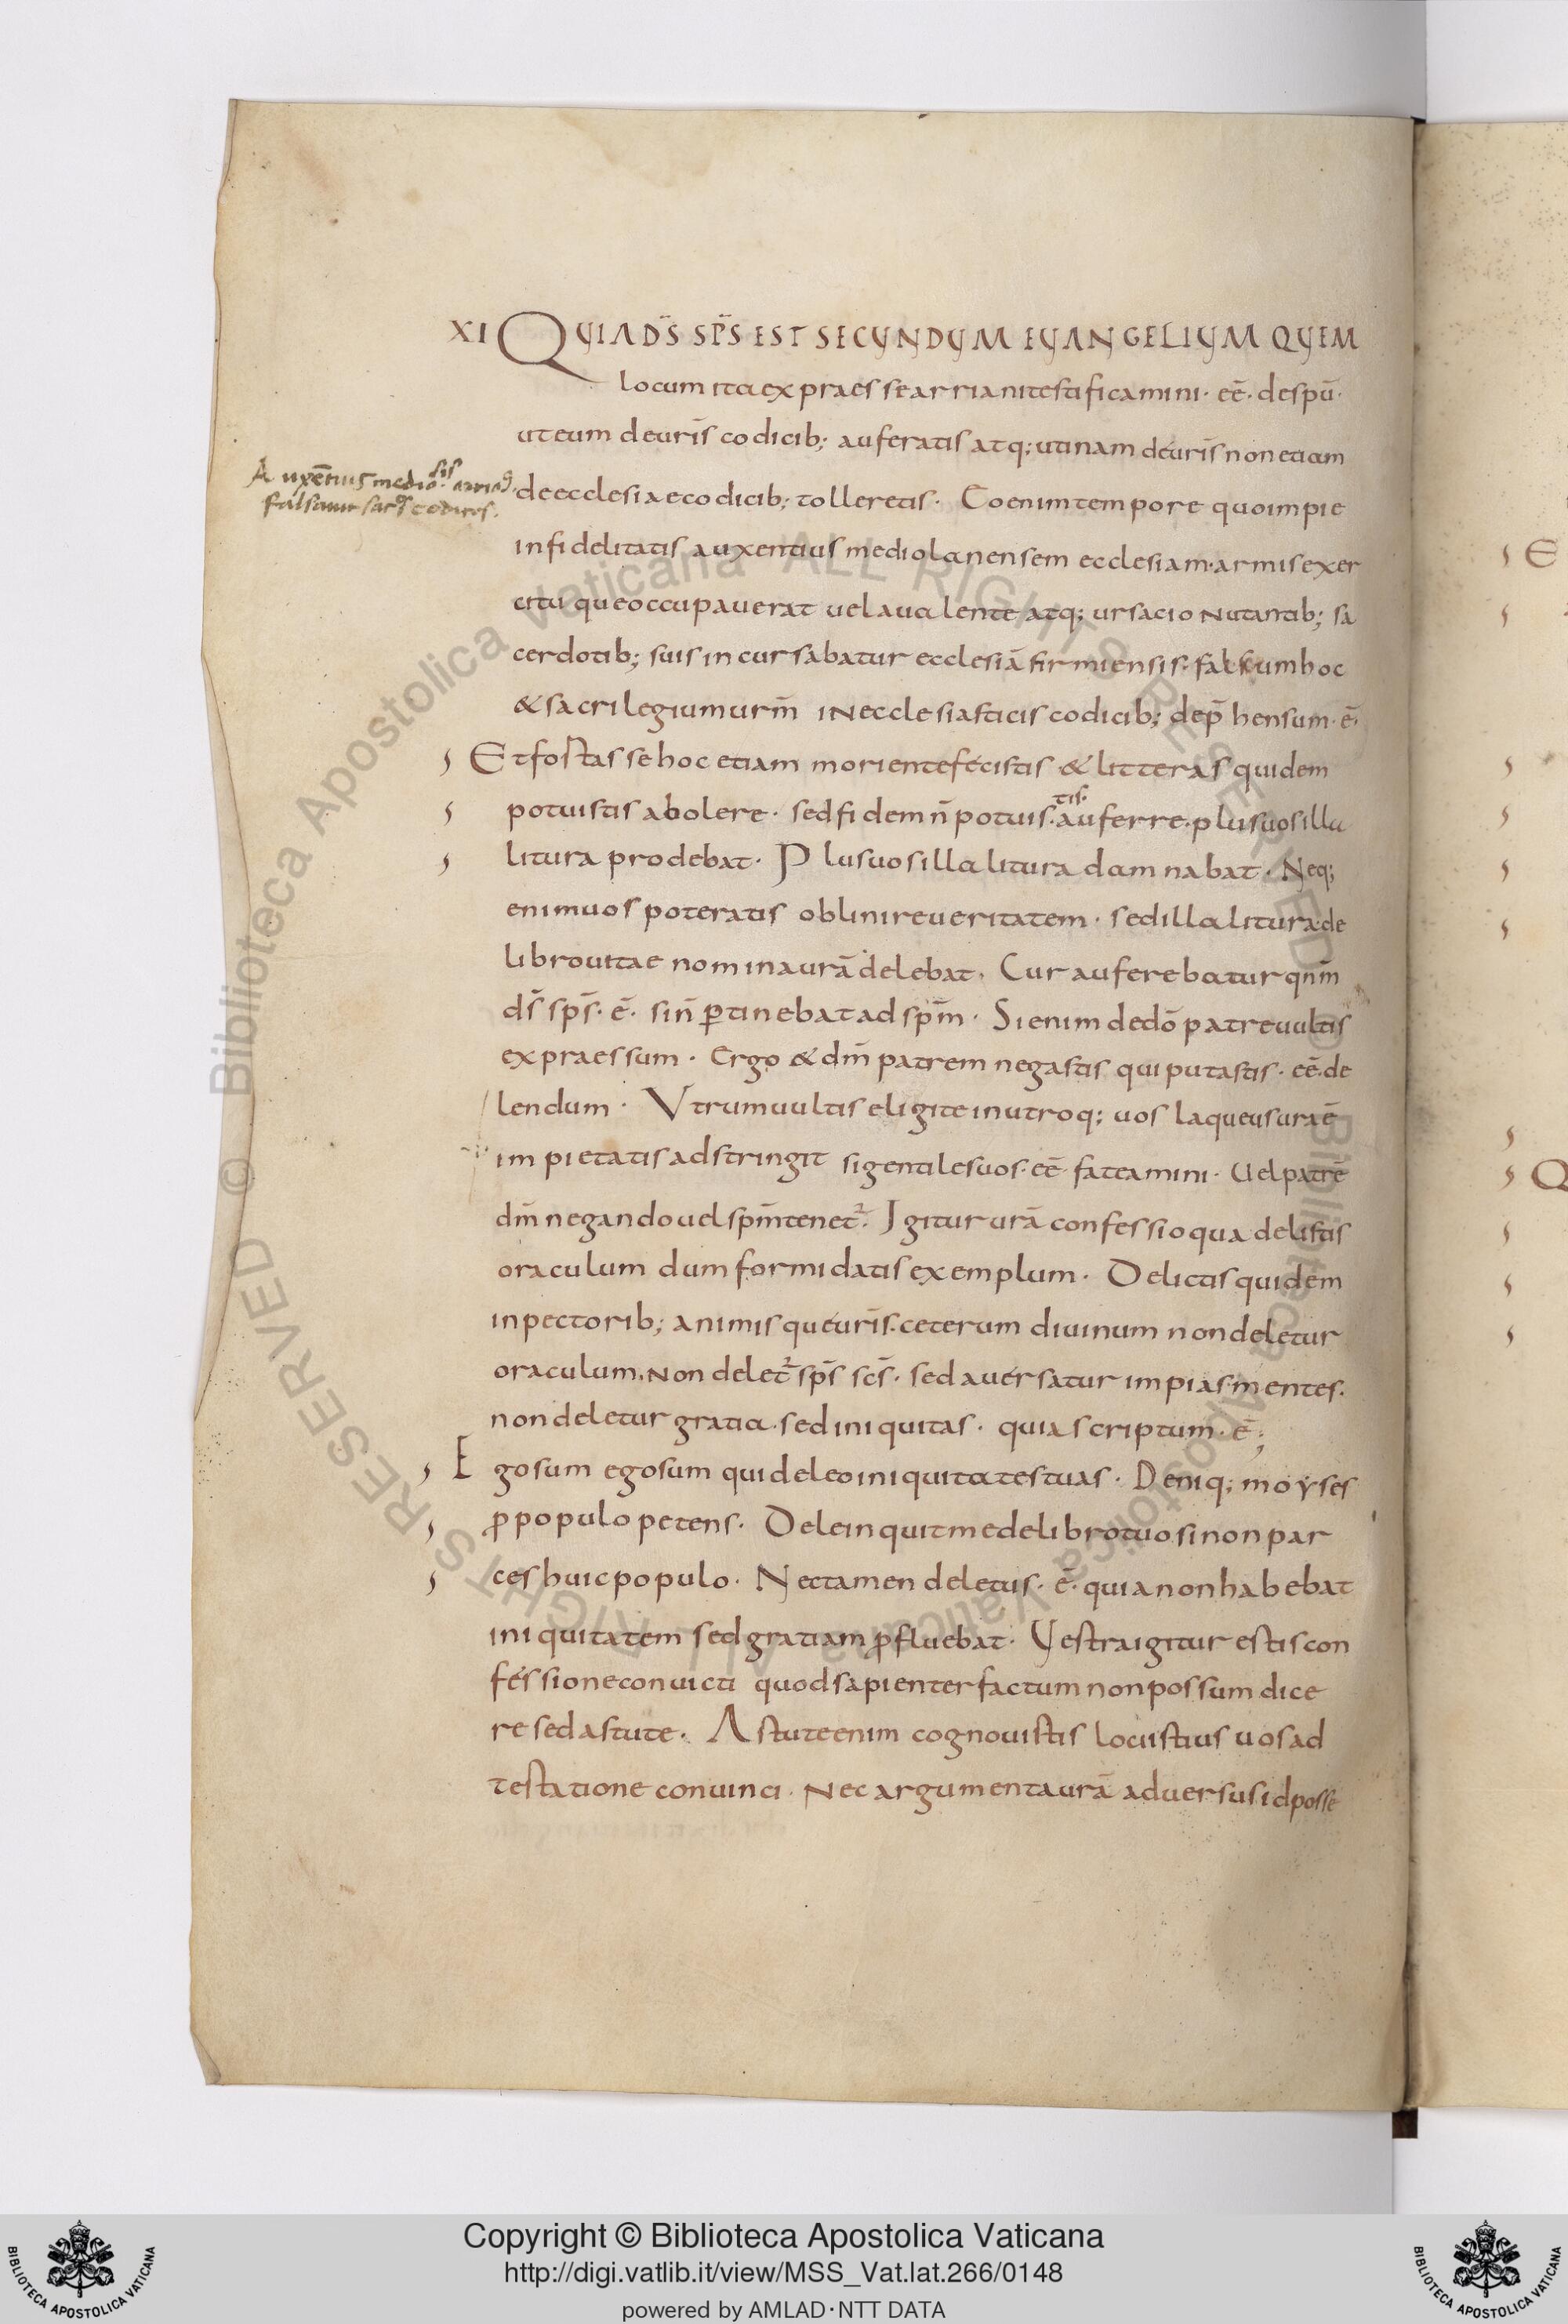 XI QUIA DS̄ SPS̄ EST SECUNDUM EUANGELIUM QUEM
locum ita expraesse arriani testificamini · eē · de spū ·
ut eum de uris̄ codicib; auferatis atq; utinam de uris̄ non etiam
Auxētius mediolsis
falsauit codices.
de ecclesiae codicib; tolleretis · Eo enim tempore quo impie
infidelitatis auxentius mediolanensem ecclesiam · armis exer
cituque occupauerat uel aualente atq; ursacio nutantib; sa
cerdotib; suis incursabatur ecclesiā firmiensis · falsum hoc
& sacrilegium urm̄ in ecclesiasticis codicib; dep̄hensum · ē ·
Et fostasse hoc etiam moriente fecistis & litteras quidem
potuistis abolere · sed fidem n̄ potuis·tis· auferre · plus uos illa
litura prodebat · Plus uos illa litura damnabat · Neq;
enim uos poteratis oblinire ueritatem · sed illa litura · de
libro uitae nomina urā delebat · Cur auferebatur qnm̄
ds̄ sps̄ · ē · si n̄ p̱tinebat ad spm̄ · Si enim de dō patre uultis
expraessum · Ergo & dm̄ patrem negastis qui putastis · eē · de
lendum · Utrum uultis eligite in utroq; uos laqueus urae
impietatis adstringit si gentiles uos · eē · fateamini · Uel patrē
dm̄ negando uel spm̄ tenet᷑ · Igitur urā confessio qua delistis
oraculum dum formidatis exemplum · Delictis quidem
in pectorib; animisque uris̄ · ceterum diuinum non deletur
oraculum · Non delet᷑ sps̄ scs̄ · sed auersatur impias mentes ·
non deletur gratia · sed iniquitas · quia scriptum · ē ;
Ego sum ego sum qui deleo iniquitates tuas · Deniq; moyses
ꝓ populo petens · Dele inquit me de libro tuo si non par
ces huic populo · Nec tamen deletus · ē · quia non habebat
iniquitatem sed gratiam ꝓfluebat · Uestra igitur estis con
fessione conuicti quod sapienter factum non possum dice
re sed astute · Astute enim cognouistis locii stius uos ad
testatione conuinci · Nec argumenta urā aduersus id posse
Copyright © Biblioteca Apostolica Vaticana
http://digi.vatlib.it/view/MSS_Vat.lat.266/0148
powered by AMLAD·NTT DATA
BIBLIOTECA APOSTOLICA VATICANA
BIBLIOTECA APOSTOLICA VATICANA
© Biblioteca Apostolica Vaticana ALL RIGHTS RESERVED
© Biblioteca Apostolica Vaticana ALL RIGHTS RESERVED